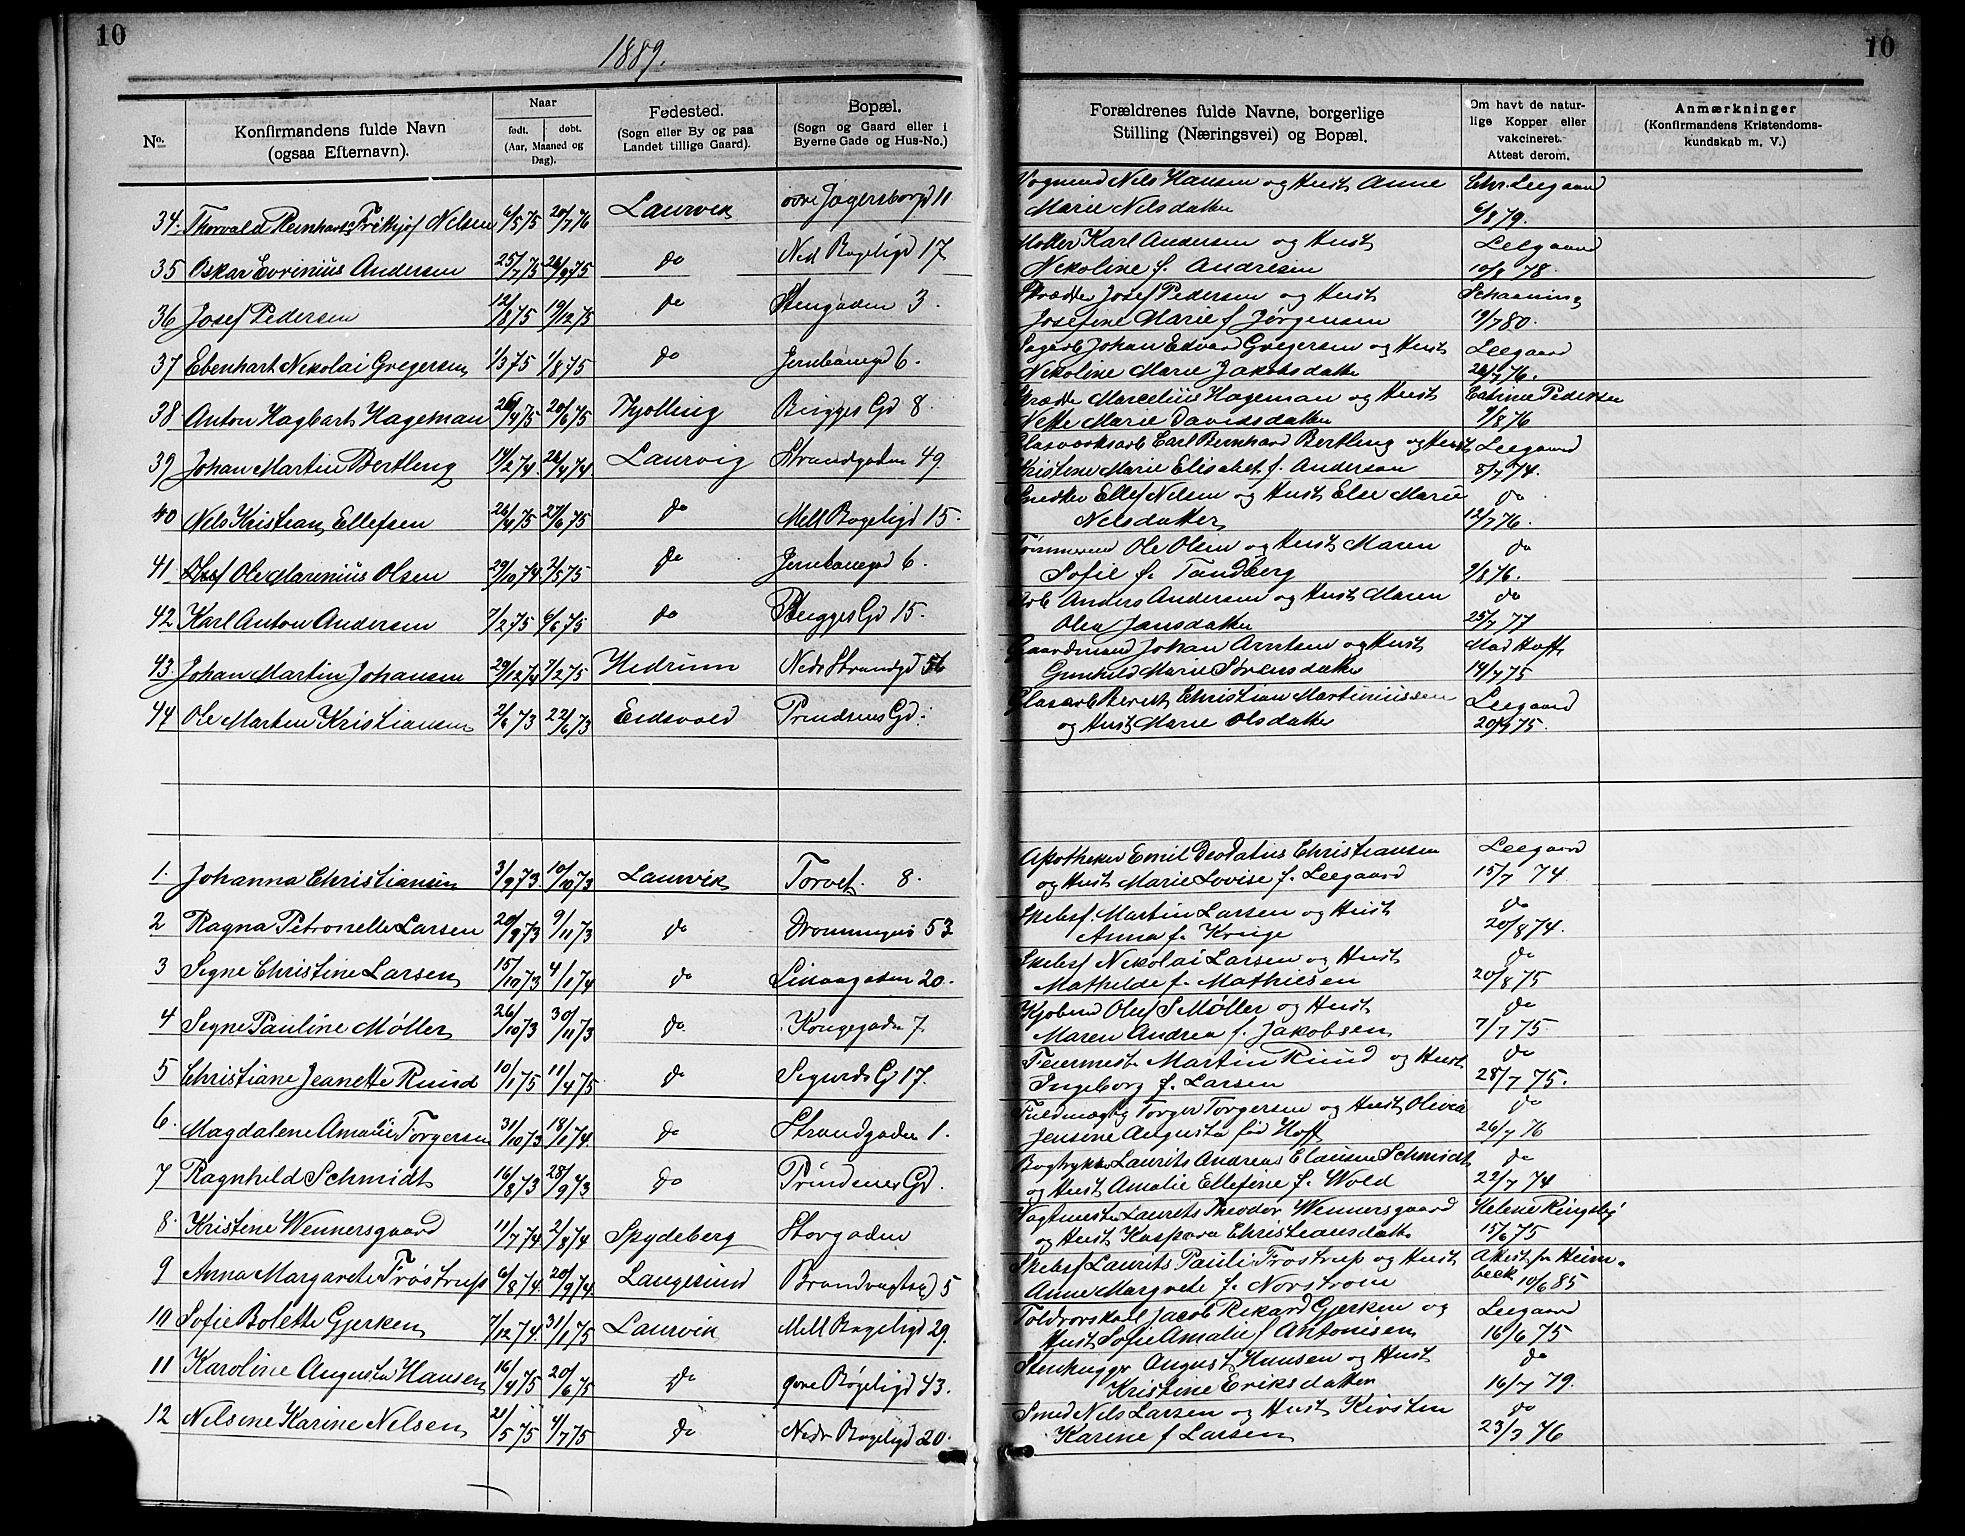 10
1889.
10
No.
Konfirmandens fulde Navn
(ogsaa Efternavn).
Naar
født. døbt.
(Aar, Maaned og
Dag).
Fødested.
(Sogn eller By og paa
Landet tillige Gaard).
Bopæl.
(Sogn og Gaard eller i
Byerne Gade og Hus-No.)
Forældrenes fulde Navne, borgerlige
Stilling (Næringsvei) og Bopæl.
Om havt de natur-
lige Kopper eller
vakcineret.
Attest derom.
Anmærkninger
(Konfirmandens Kristendoms-
kundskab m. V.)
34. Thorvald Reinhardt Frithjof Nelsen 6/5 75 20/7 76 Laurvik øvre Jegersborgd 11 Vognmd Nels Hansen og Hust Anne Chr. Leegaard
Marie Nelsdatter 6/8 79.
35 Oskar Evrinius Andersen 25/7 75 26/9 75 do Ned Bøgeligd 17 Møller Karl Andersen og Hust Leegaard
Nekoline f. Andresen 10/8 78.
36 Josef Pedersen 12/8 75 19/12 75 do Stengaden 3. Josef Pedersen og Hust Schaaning
Josefine Marie f Jørgensen 19/7 80.
37 Ebenhart Nekolai Gregersen 1/3 75 1/8 75 do Jernbanegd 6. Sagarb Johan Edvard Gregersen og Hust Leegaard
Nekoline Marie Jakobsdatter 26/7 76.
38 Anton Hagbart Hageman 26/4 75 20/6 75 Thjølling Brigges Gd 8. Marcelius Hageman og Hust Catrine Pedersen
Nette Marie Davidsdatter 9/8 76
39 Johan Martin Bertling 14/2 74 26/4 74 Laurvig Strandgaden 49. Glasværksarb Carl Bernhard Bertling og Hust Leegaard
Kristine Marie Elisabet f. Anderson 8/7 74.
40 Nels Kristian Ellefsen 26/4 75 27/6 75 do Mell Bøgeligd 15. Snedker Ellef Nelsen og Hust Else Marie do
Nelsdatter 12/7 76.
41 Ole Marenius Olsen 29/10 74 2/5 75 do Jernbanegd 6. Tømmermd Ole Olsen og Hust Maren do
Sofie f. Tandberg 9/8 76.
42 Karl Anton Andersen 7/2 75 6/6 75 do Brigges Gd 15. Arb Anders Andersen og Hust Maren do
Olea Jansdatter 25/7 77
43. Johan Martin Johansen 29/12 74 7/2 75 Hedrum Nedr Strandgd 56 Gaardmand Johan Arntsen og Hust Mad Hoff
Gunhild Marie Sørensdatter 14/7 75
44 Ole Marten Kristiansen 2/6 73 22/6 73 Eidsvold Prindsens Gd. Christian Martinussen Leegaard
og Hust Marie Olsdatter 20/9 75.
1. Johanna Christiansen 3/9 73 10/10 73 Laurvik Torvet. 8. Apotheker Emil Deodatus Christiansen Leegaard
og Hust Marie Lovise f. Leegaard 15/7 74
2 Ragna Petronelle Larsen 20/9 73 9/11 73 do Dronningens 53 Skebsf. Martin Larsen og Hust do
Anna f. Krige 20/8 74.
3 Segne Christine Larsen 15/10 73 4/1 74 do 20. Skebsf Nekolai Larsen og Hust do
Mathilde f. Mathiesen 20/8 75
4 Segne Pauline Møller 26/10 73 30/11 73 do. Kongegaden 7 Kjøbmd Oluf S Møller og Hust do
Maren Andrea f. Jakobsen 7/7 75
5 Christiane Jeanette Ruud 10/1 75 11/4 75 do Segurds G 17. Feiermest. Martin Ruud og Hust do
Ingeborg f. Larsen 28/7 75.
6. Magdalene Amalie Torgersen 31/10 73 18/1 74 do Strandgaden 1. Fuldmægtig Torger Torgersen og Hust Olivia do
Jensine Augusta fød Hoff 26/7 76
7 Ragnheld Schmidt 16/8 73 28/9 73 do Prindsens Gd. Bogtrykker Laurits Andreas Clausen Schmidt do
og Hust Amalie Ellefine f. Wold 22/7 74
8. Kristene Wennersgaard 11/7 74 2/8 74 Spydeberg Storgaden Vagtmester Laurets Theodor Wennersgaard Helene Ringsby
og Hust Kaspara Christiansdatter 15/6 75
9 Anna Margarete Frøstrup 6/8 74 20/9 74 Langesund Brandvagtsgd 5 Skebsf Laurets Pauli Frøstrup og Hust Attest fr Heim-
Anne Margrete f. Norstrøm beck 10/6 85
10 Sofie Bolette Gjerken 7/12 74. 31/1 75 Laurvik Mell Bøgeligd 29. Toldrorskarl Jacob Rikard Gjerken og Leegaard
Hust Sofie Amalie f Antonisen 16/6 75
11 Karoline Augusta Hansen 16/4 75 20/6 75 do øvre Bøgeligd 43. Stenhugger August Hansen og Hust do
Kristine Eriksdatter 16/7 79.
12 Nelsine Karine Nelsen 21/5 75 4/7 75 do Nedr Bøgeligd 20. Smed Nels Larsen og Hust Kirsten do
Karine f Larsen 23/3 76